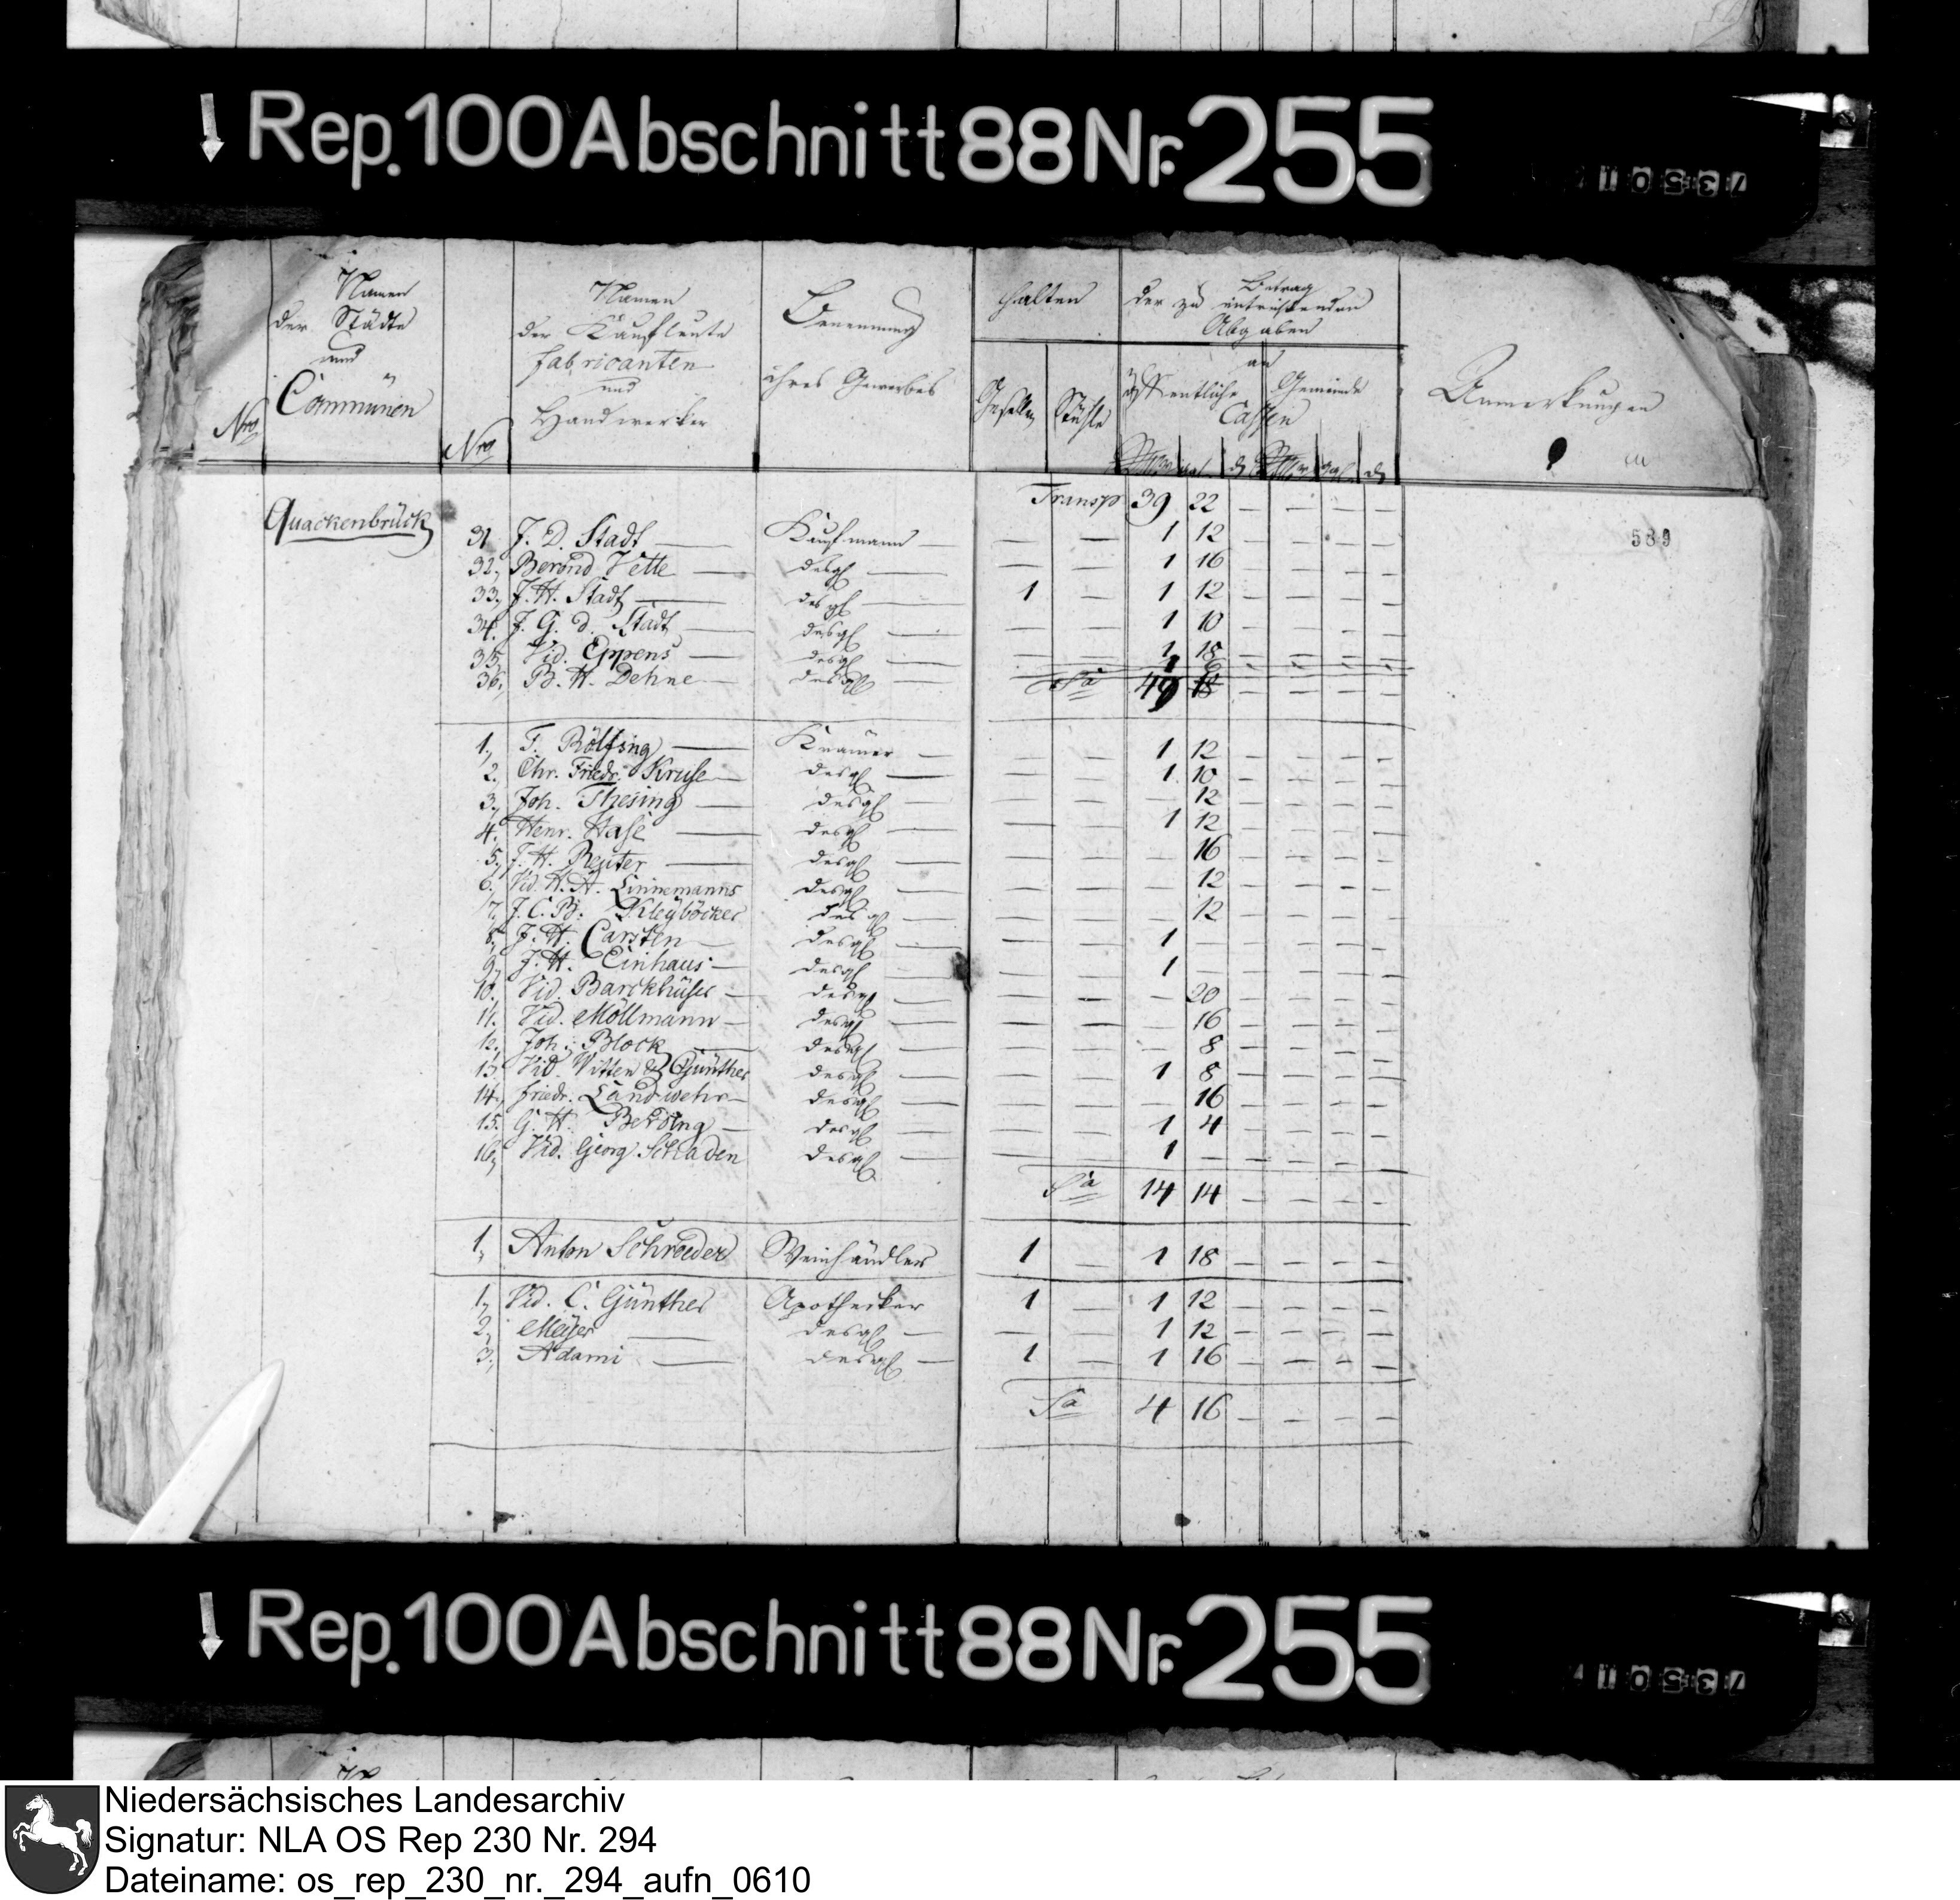 Rep. 100 Abschnitt 88 Nr. 255
73501
Nro
Namen der Städte und Communen
Nro
Namen der Kaufleute fabricanten und Handwerker
Benennung ihres Gewerbes
halten
Gesellen Stühle
Betrag der zu entrichtenden Abgaben
an
öffentliche Gemeinde
Cassen
Anmerkungen
589
Transp 39 22 — — — —
Quackenbrück
31 J. D. Stadt — Kaufmann — — — 1 12 — — — —
32, Berend Vette — desgl — — — 1 16 — — — —
33, J. H. Stadt — desgl — 1 — 1 12 — — — —
34. J. G. d. Stadt — desgl — — — 1 10 — — — —
35, Vid. Eppens — desgl — — — 1 18 — — — —
36, B. H. Dehne — desgl
Sa 49
1, F. Rölfsing — Krämer — — — 1 12 — — — —
2, Chr. Friedr. Kruse — desgl — — — 1 10 — — — —
3, Joh. Thesing — desgl — — — — 12 — — — —
4. Henr. Hase — desgl — — — 1 12 — — — —
5, J. H. Reuter — desgl — — — — 16 — — — —
6, Vid. H. A. Linnemanns desgl — — — — 12 — — — —
7, J. C. B. Kleyböcker desgl — — — — 12 — — — —
8, J. H. Carsten — desgl — — — 1 — — — — —
9, J. H. Einhaus — desgl — — — 1 — — — — —
10. Vid. Barckhüser — desgl — — — — 20 — — — —
11. Vid. Möllmann — desgl — — — — 16 — — — —
12. Joh: Block — desgl — — — — 8 — — — —
13 Vid. Witten & Günther desgl — — — 1 8 — — — —
14, friedr. Landwehr — desgl — — — — 16 — — — —
15. G. H. Berding — desgl — — — 1 4 — — — —
16, Vid. Georg Schaden desgl — — — 1 — — — — —
Sa 14 14 — — — —
1, Anton Schroeder Weinhändler 1 — 1 18 — — — —
1, Vid. C. Günther Apothecker 1 — 1 12 — — — —
2, Meyer — desgl — — — 1 12 — — — —
3, Adami — desgl — 1 — 1 16 — — — —
Sa 4 16 — — — —
Rep. 100 Abschnitt 88 Nr. 255
73501
Niedersächsisches Landesarchiv
Signatur: NLA OS Rep 230 Nr. 294
Dateiname: os_rep_230_nr._294_aufn_0610